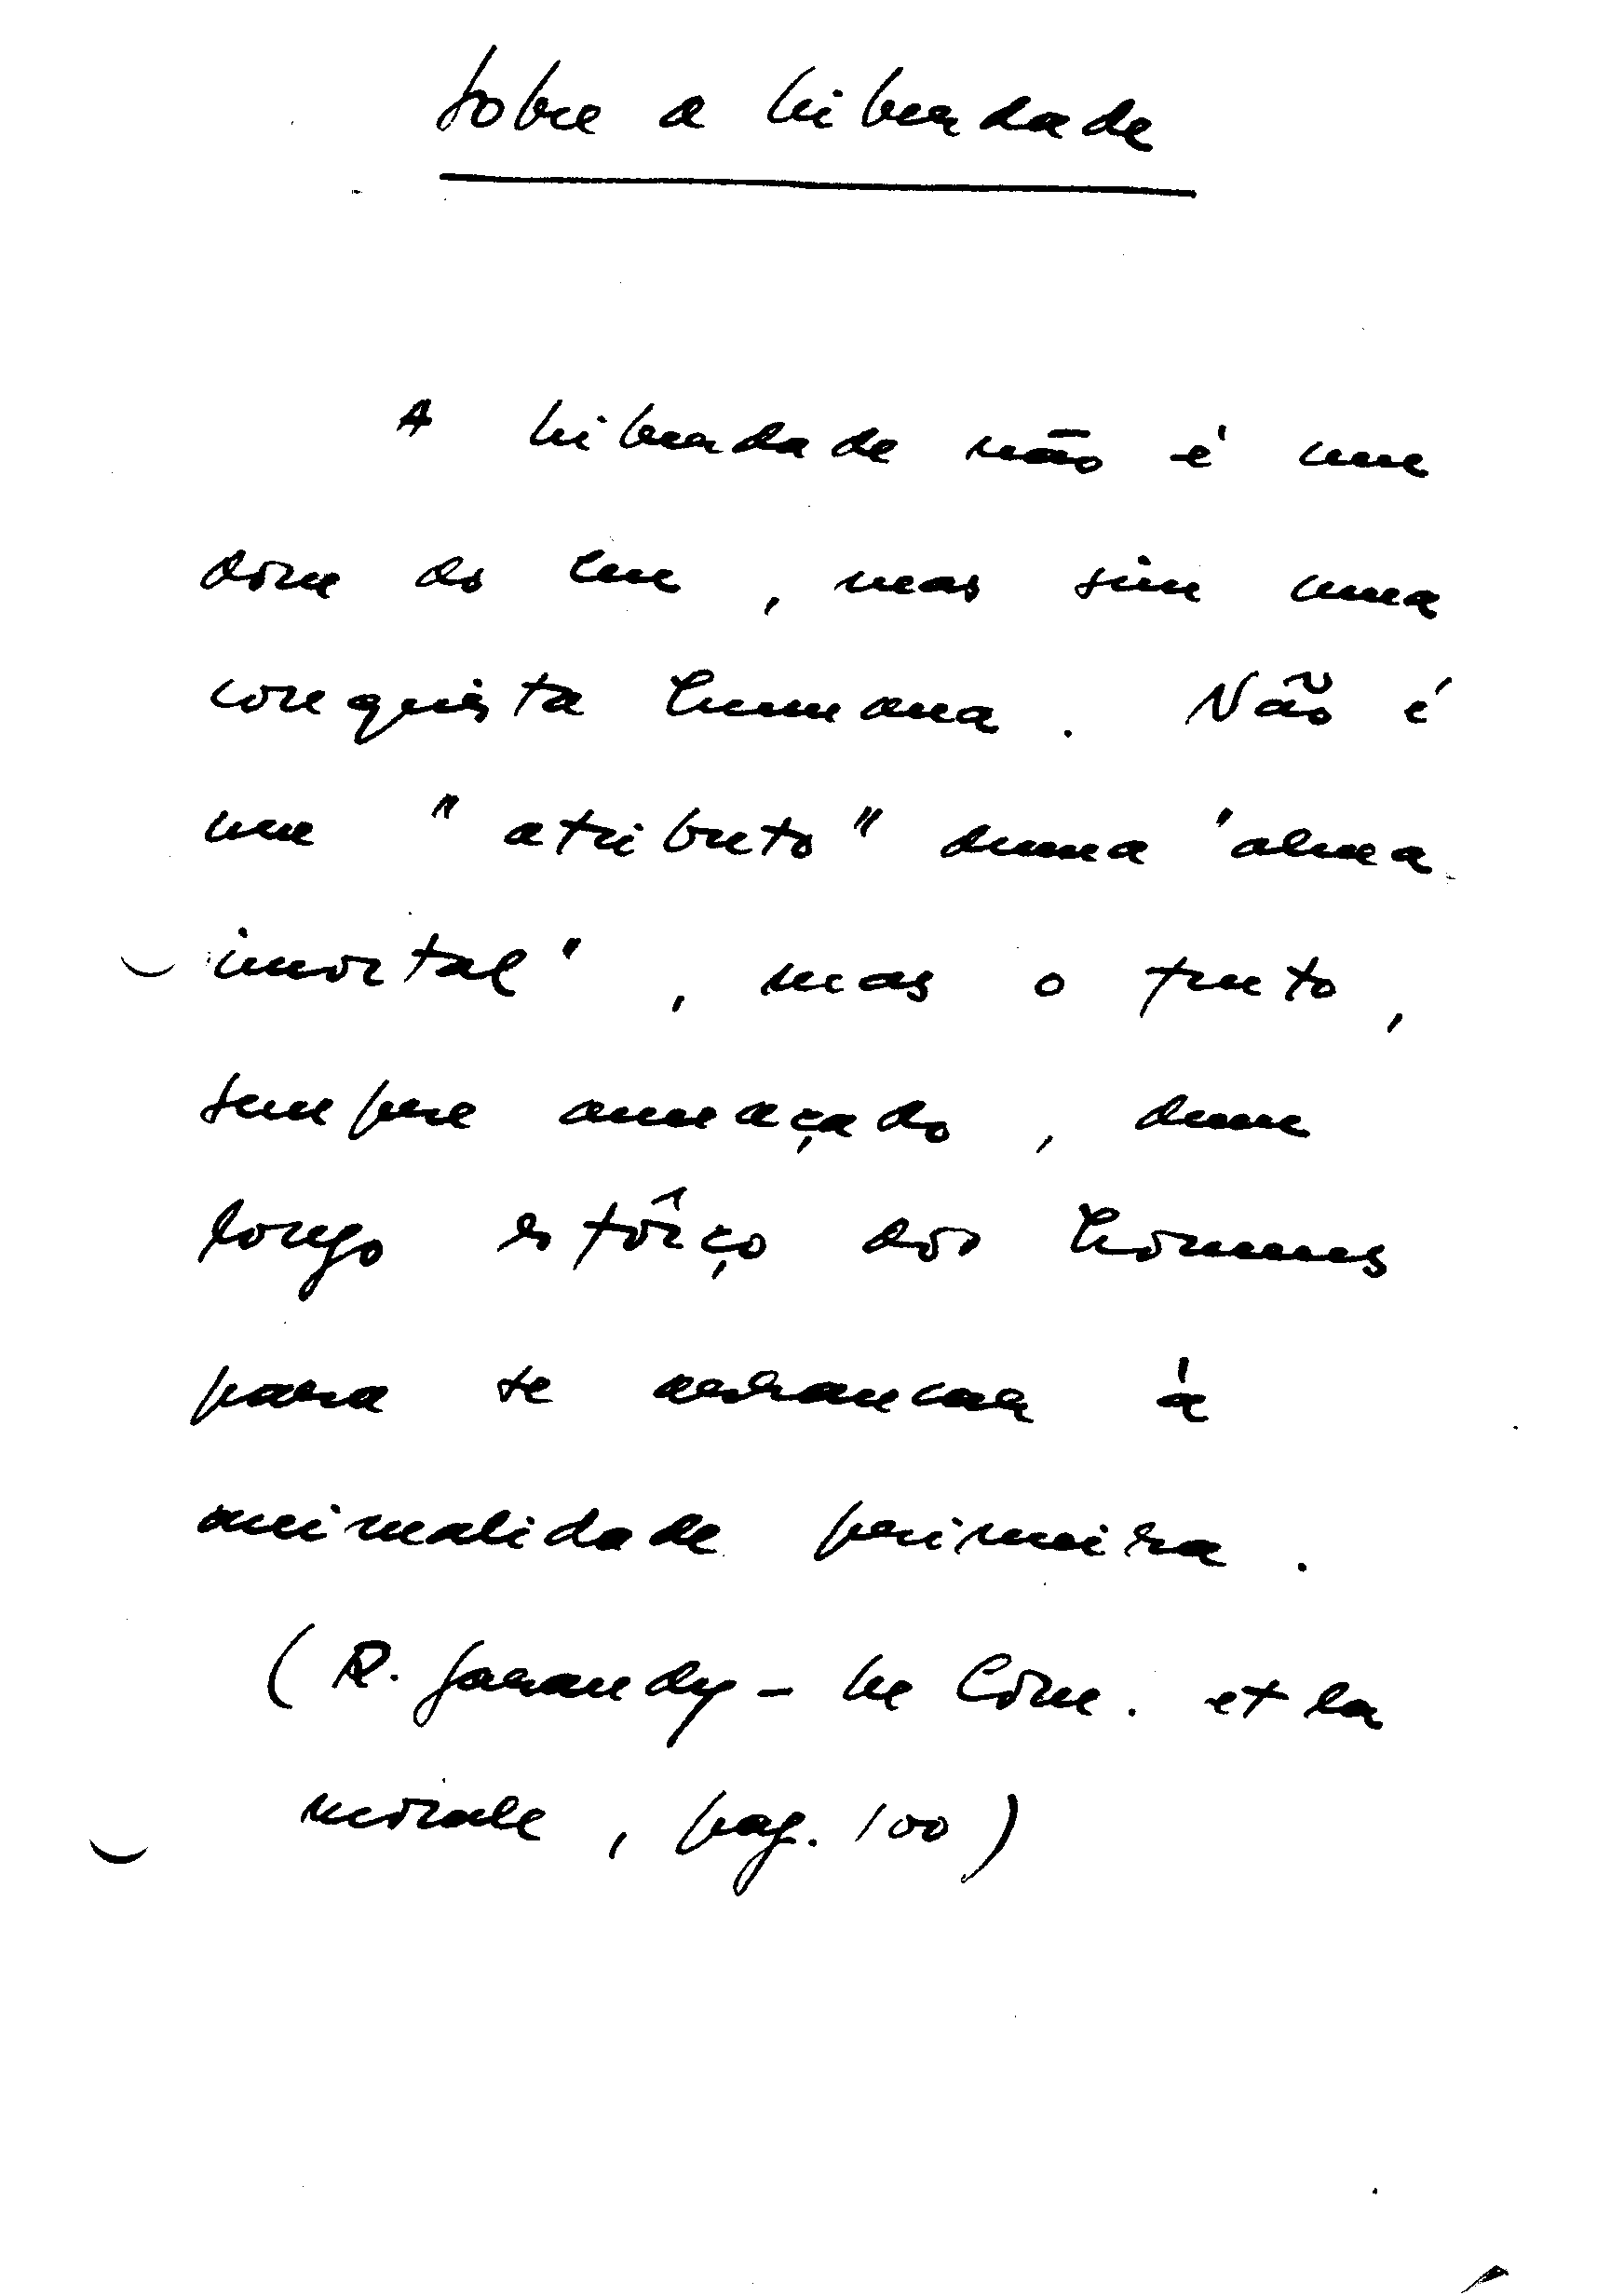 Sobre a liberdade
A liberdade não é um
dom do céu, mas sim uma
conquista humana. Não é
um "atributo" duma 'alma
imortal', mas o fruto,
sempre ameaçado, dum
longo esfôrço dos homens
para se arrancar à
animalidade primeira.
(R. Garaudy - Le Com. et la
morale, pag. 100)